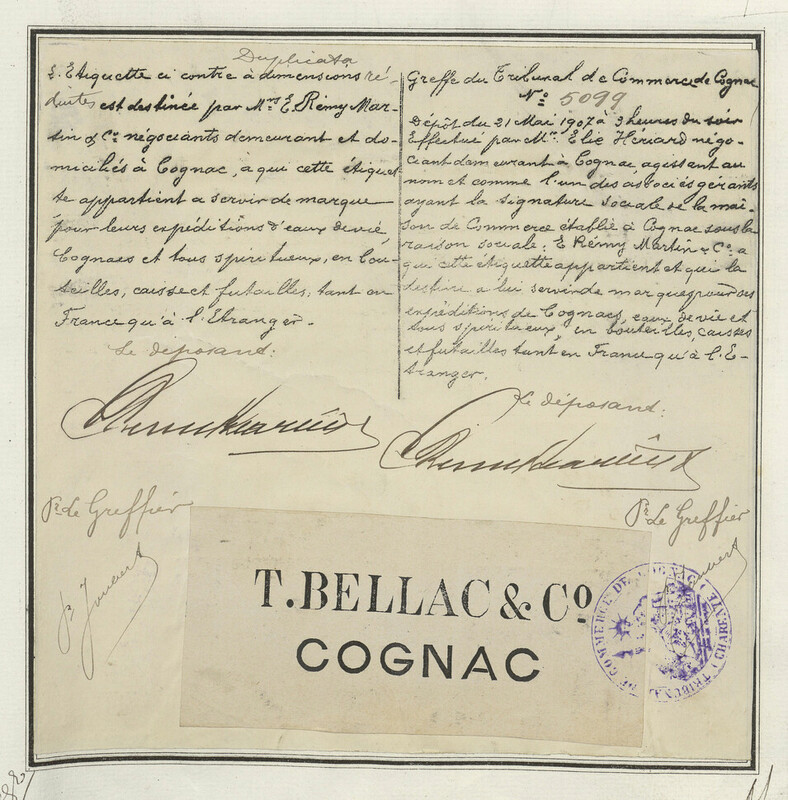 Duplicata
L'Etiquette ci contre à dimensions ré-
duites est destinée par Mrs E. Rémy Mar-
tin & Co négociants demeurant et do-
miciliés à Cognac, à qui cette étiquet-
te appartient a servir de marque
pour leurs expéditions d'eaux de vie,
Cognacs et tous spiritueux, en bou-
teilles, caisse et futailles, tant en
France qu'à l'Etranger.
Le déposant:
Pr. Le Greffier
Greffe du Tribunal de Commerce de Cognac
No 5099
Dépôt du 21 Mai 1907 à 3 heures du soir
Effectué par Mr. Elie Hériard négo-
ciant demeurant à Cognac, agissant au
nom et comme l'un des associés gérants
ayant la signature sociale de la mai-
son de Commerce établie à Cognac sous la
raison sociale: E Rémy Martin & Co. a
qui cette étiquette appartient et qui la
destine a lui servir de marque pour ses
expéditions de Cognacs, eaux de vie et
tous spiritueux, en bouteilles, caisses
et futailles tant en France qu'à l'E-
tranger.
Le déposant:
Pr. Le Greffier
T. BELLAC & Co
COGNAC
TRIBUNAL DE COMMERCE DE COGNAC (CHARENTE)